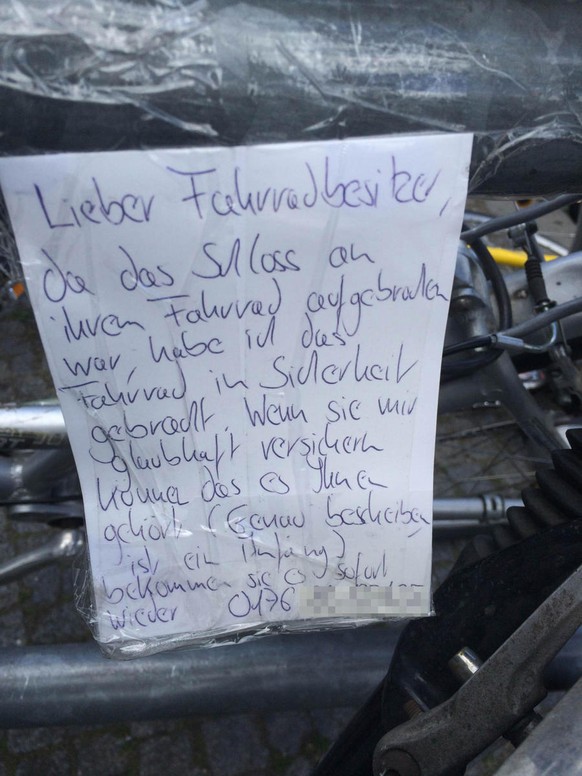 Lieber Fahrradbesitzer,
da das Schloss an
ihrem Fahrrad aufgebrochen
war, habe ich das
Fahrrad in Sicherheit
gebracht. Wenn sie mir
glaubhaft versichern
können das es Ihnen
gehört (Genau bescheiben
ist ein Anfang)
bekommen sie es sofort
wieder 0176